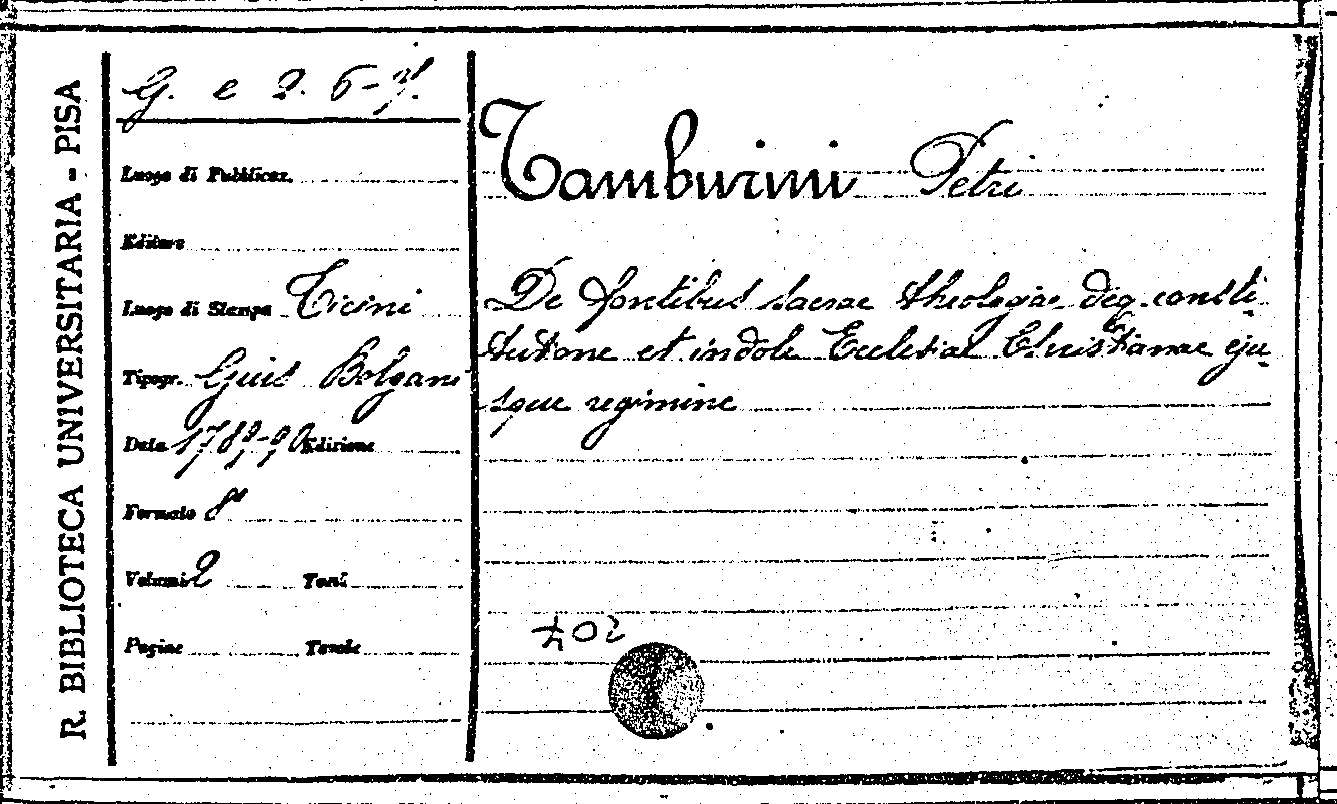 R. BIBLIOTECA UNIVERSITARIA - PISA
G. e 2. 6-7.
Luogo di Pubblicaz.
Editore
Luogo di Stampa Ticini
Tipogr. Guis Bolzani
Data 1789-90 Edizione
Formato 8°
Volumi 2 Tomi
Pagine Tavole
Tamburini Petri
De fontibus sacrae theologiae deq. consti-
tutione et indole Ecclesiae Christianae eju-
sque regimine